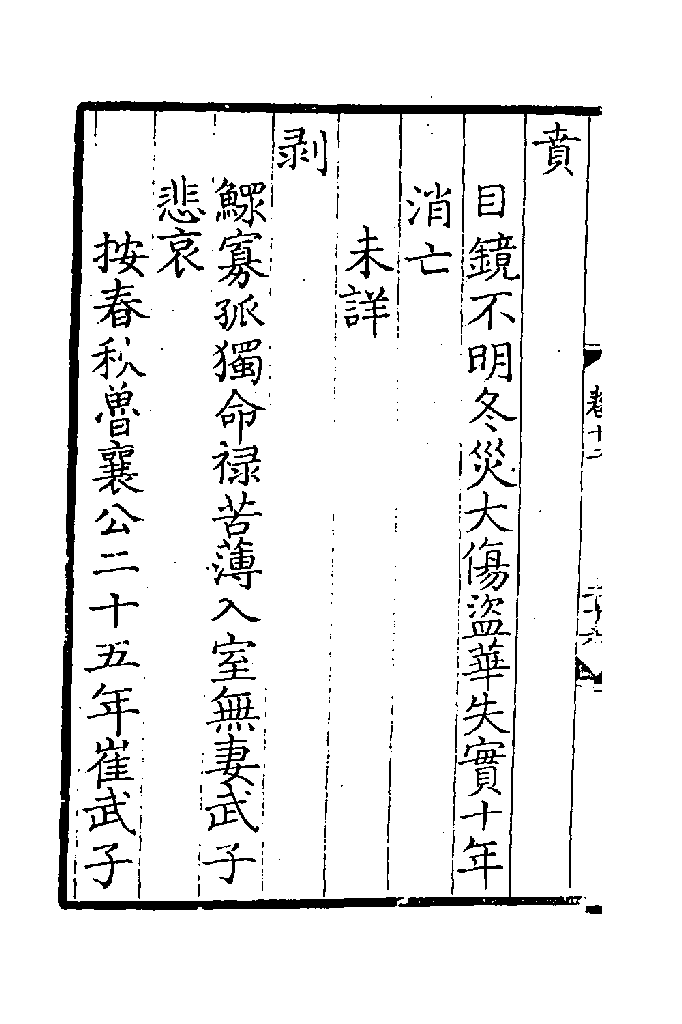 賁
目鏡不明冬災大傷盜華失實十年
消亡
未詳
剥
鰥寡孤獨命禄苦薄入室無妻武子
悲哀
按春秋魯襄公二十五年崔武子
卷十二